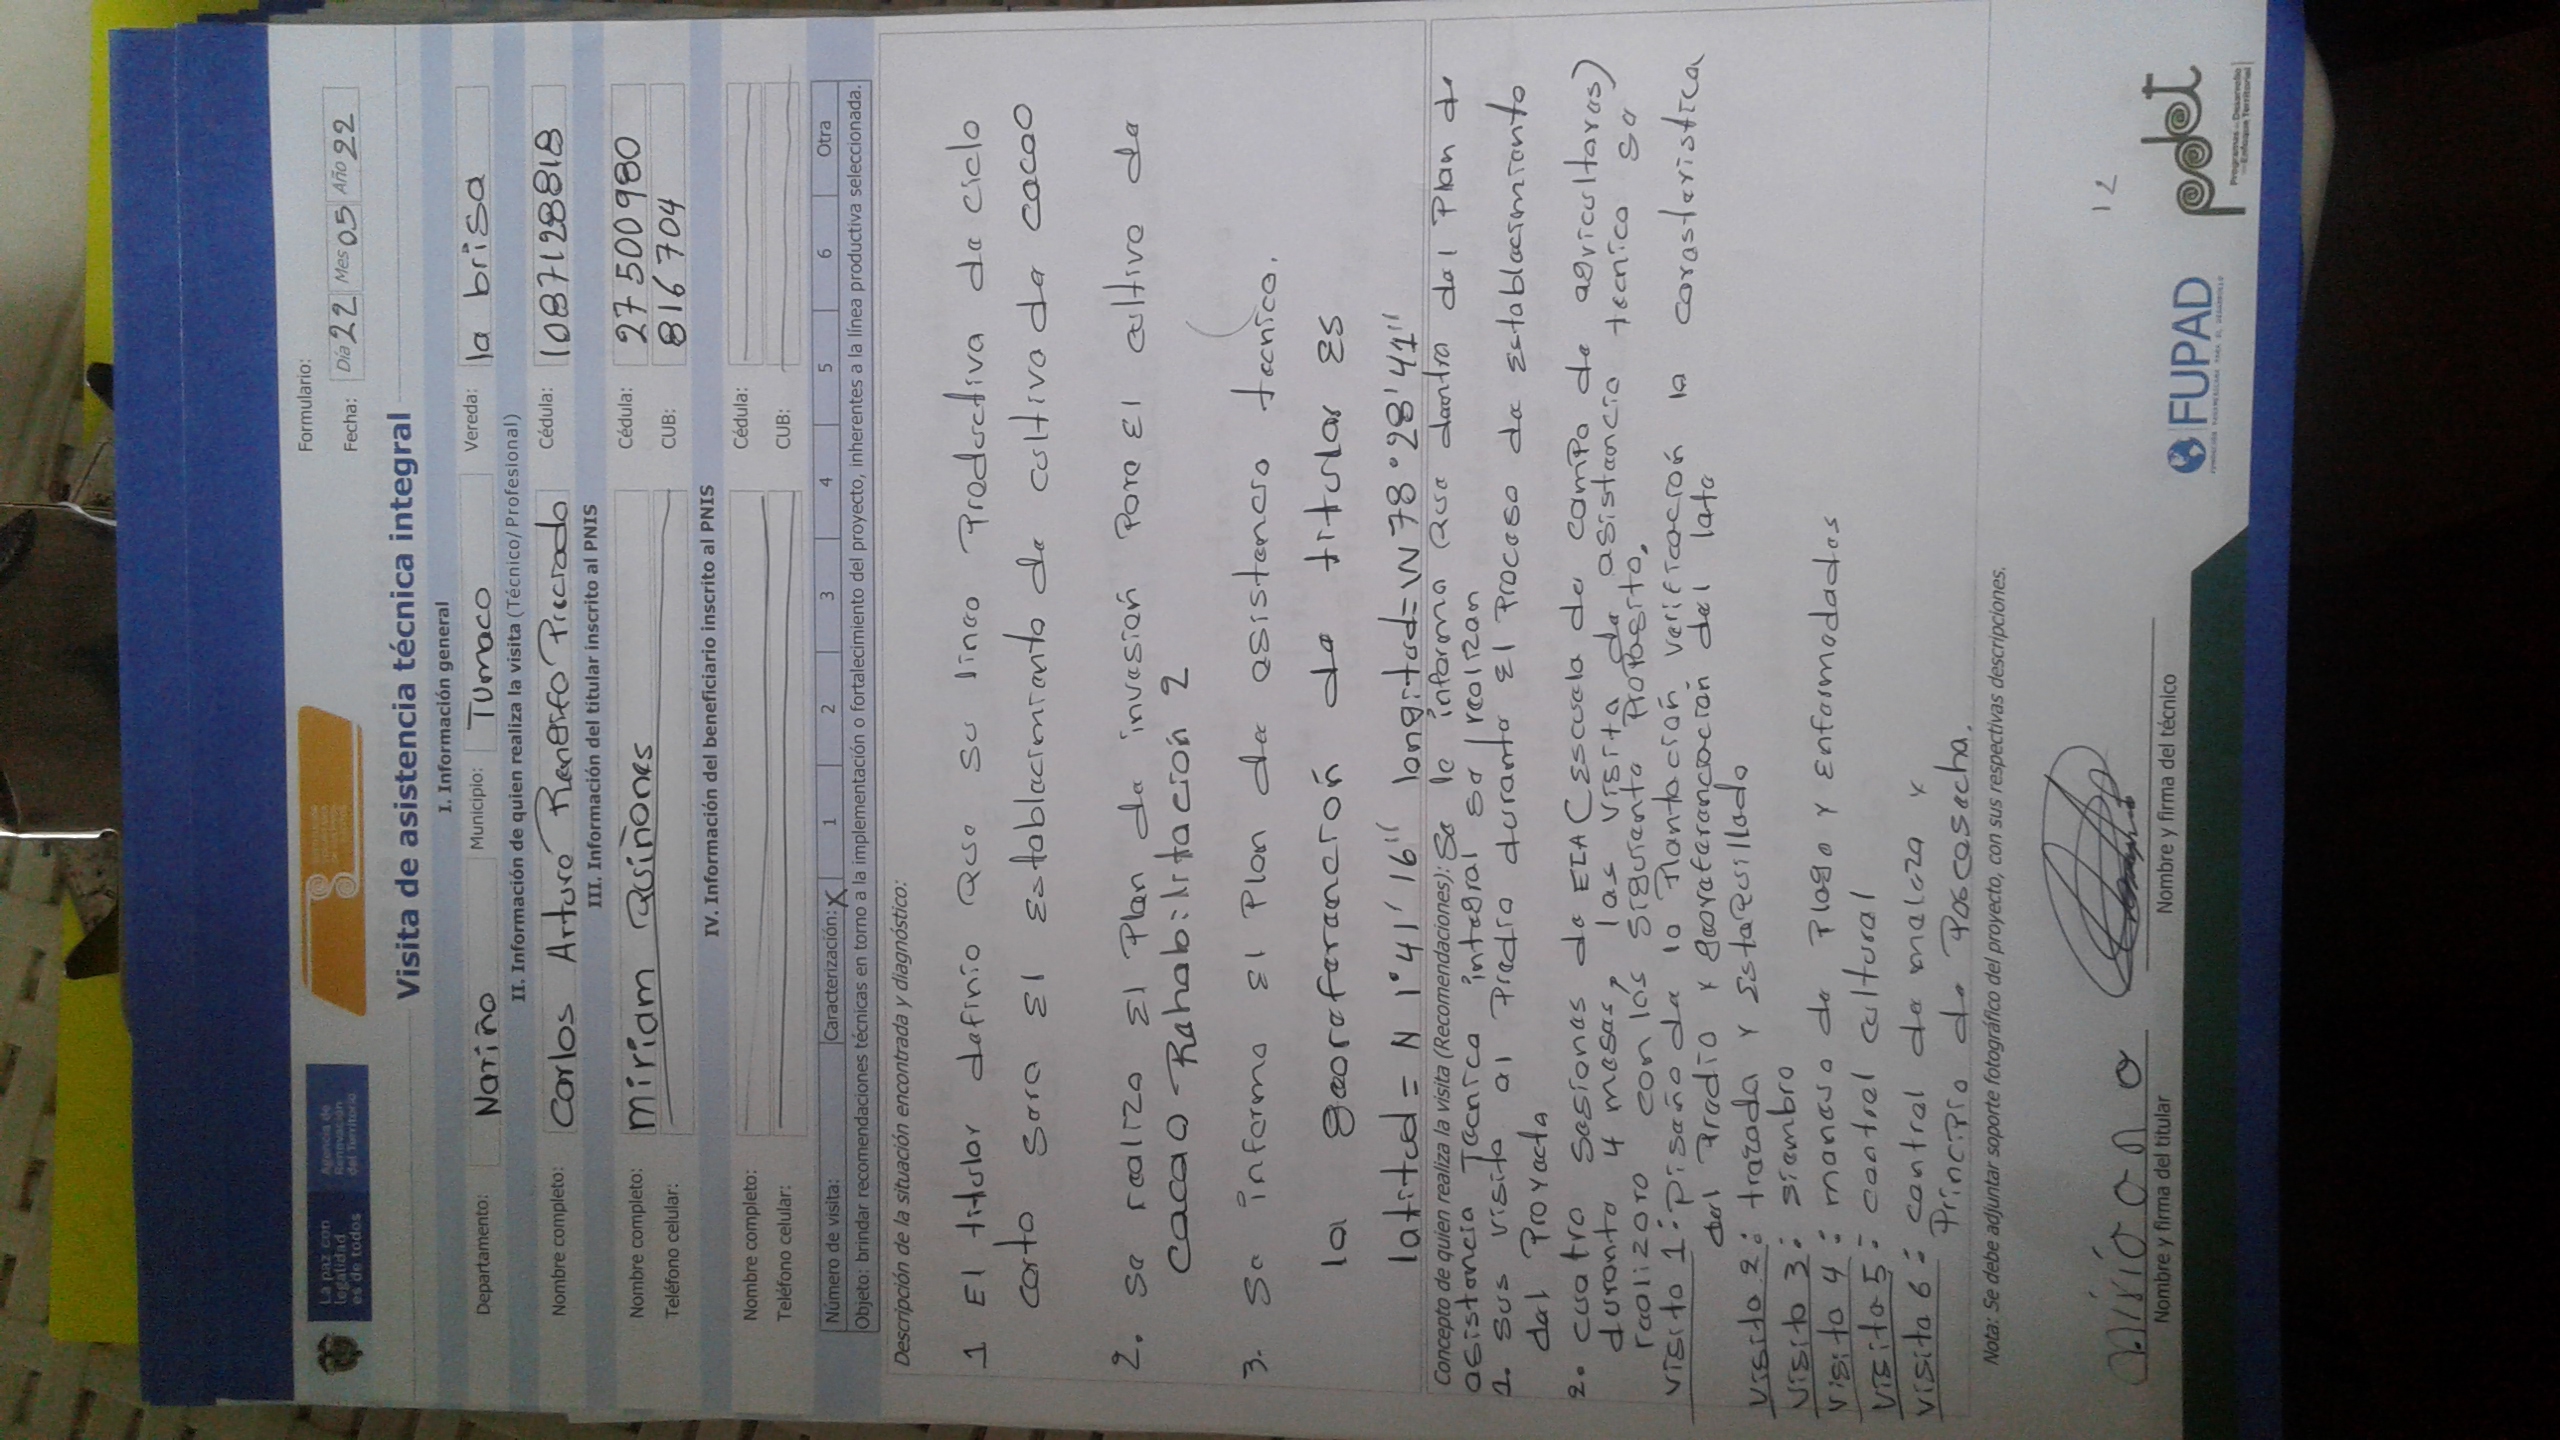 La paz con
legalidad
es de todos
Agencia de
Renovación
del Territorio
Formulario:
Fecha: Día 22 Mes 05 Año 22
Visita de asistencia técnica integral
I. Información general
Departamento: Nariño Municipio: Tumaco Vereda: la brisa
II. Información de quien realiza la visita (Técnico/Profesional)
Nombre completo: Carlos Arturo Rengifo Preciado Cédula: 1087128818
III. Información del titular inscrito al PNIS
Nombre completo: Miriam Quiñones Cédula: 27500980
Teléfono celular: CUB: 816704
IV. Información del beneficiario inscrito al PNIS
Nombre completo: Cédula:
Teléfono celular: CUB:
Número de visita: Caracterización: X 1 2 3 4 5 6 Otra
Objeto: brindar recomendaciones técnicas en torno a la implementación o fortalecimiento del proyecto, inherentes a la línea productiva seleccionada.
Descripción de la situación encontrada y diagnóstico:
1 El titular definio que su linea Productiva de ciclo
corto sera El Establecimiento de cultivo de cacao
2. Se realizo El Plan de invasión Para El cultivo de
cacao Rehabilitación 2
3. Se informo El Plan de asistencia tecnica.
la georeferanción de titular es
latitud = N 1°41'16" longitud = W 78°28'41"
Concepto de quien realiza la visita (Recomendaciones): Se le informo que dentro del Plan de
asistencia Tecnica integral se realizan
1. sus visita al Predio durante El Proceso de Establecimiento
del Proyecto
2. cuatro sesiones de ECA (Escuela de campo de agricultores)
durante 4 meses, las visita de asistencia tecnica se
realizaro con los siguiente Proposito.
visita 1: Diseño de la Plantación verificación la carasteristica
del Predio y georeferanciación del lote
visita 2: trazada y Estaquillado
visita 3: siembro
visita 4: manejo de Plaga y Enfermedades
visita 5: control cultural
visita 6: control de maleza y
Principio de Poscosecha.
Nota: Se debe adjuntar soporte fotográfico del proyecto, con sus respectivas descripciones.
12
Nombre y firma del titular
Nombre y firma del técnico
FUPAD
FUNDACIÓN PANAMERICANA PARA EL DESARROLLO
pdet
Programas de Desarrollo
con Enfoque Territorial